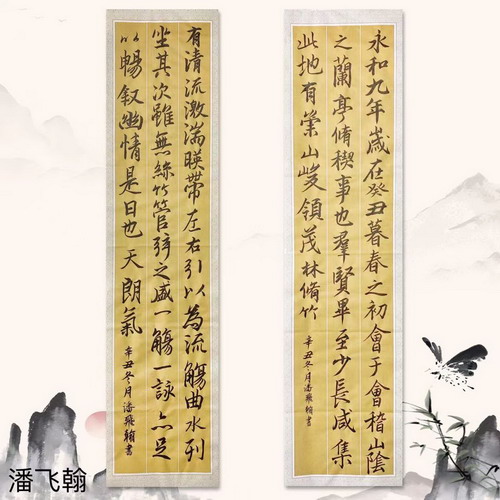 永和九年歲在癸丑暮春之初會于會稽山陰
之蘭亭脩稧事也羣賢畢至少長咸集
此地有崇山峻領茂林脩竹
辛丑冬月潘飛翰書
有清流激湍暎帶左右引以為流觴曲水列
坐其次雖無絲竹管弦之盛一觴一詠亦足
以暢叙幽情是日也天朗氣
辛丑冬月潘飛翰書
潘飞翰